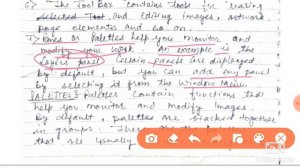 6) The Tool box contains tools for
selected Tool and Editing images, artwork
page elements and so on.
Panes or Palettes help you monitor and
modify your work. An example is the
Layers panel Certain panels are displayed
by default, but you can add any panel
by selecting it from the Window Menu
PALETTES: Palettes contain functions that
help you monitor and modify Images
by default, palettes are stacked together
in groups.
that are usually